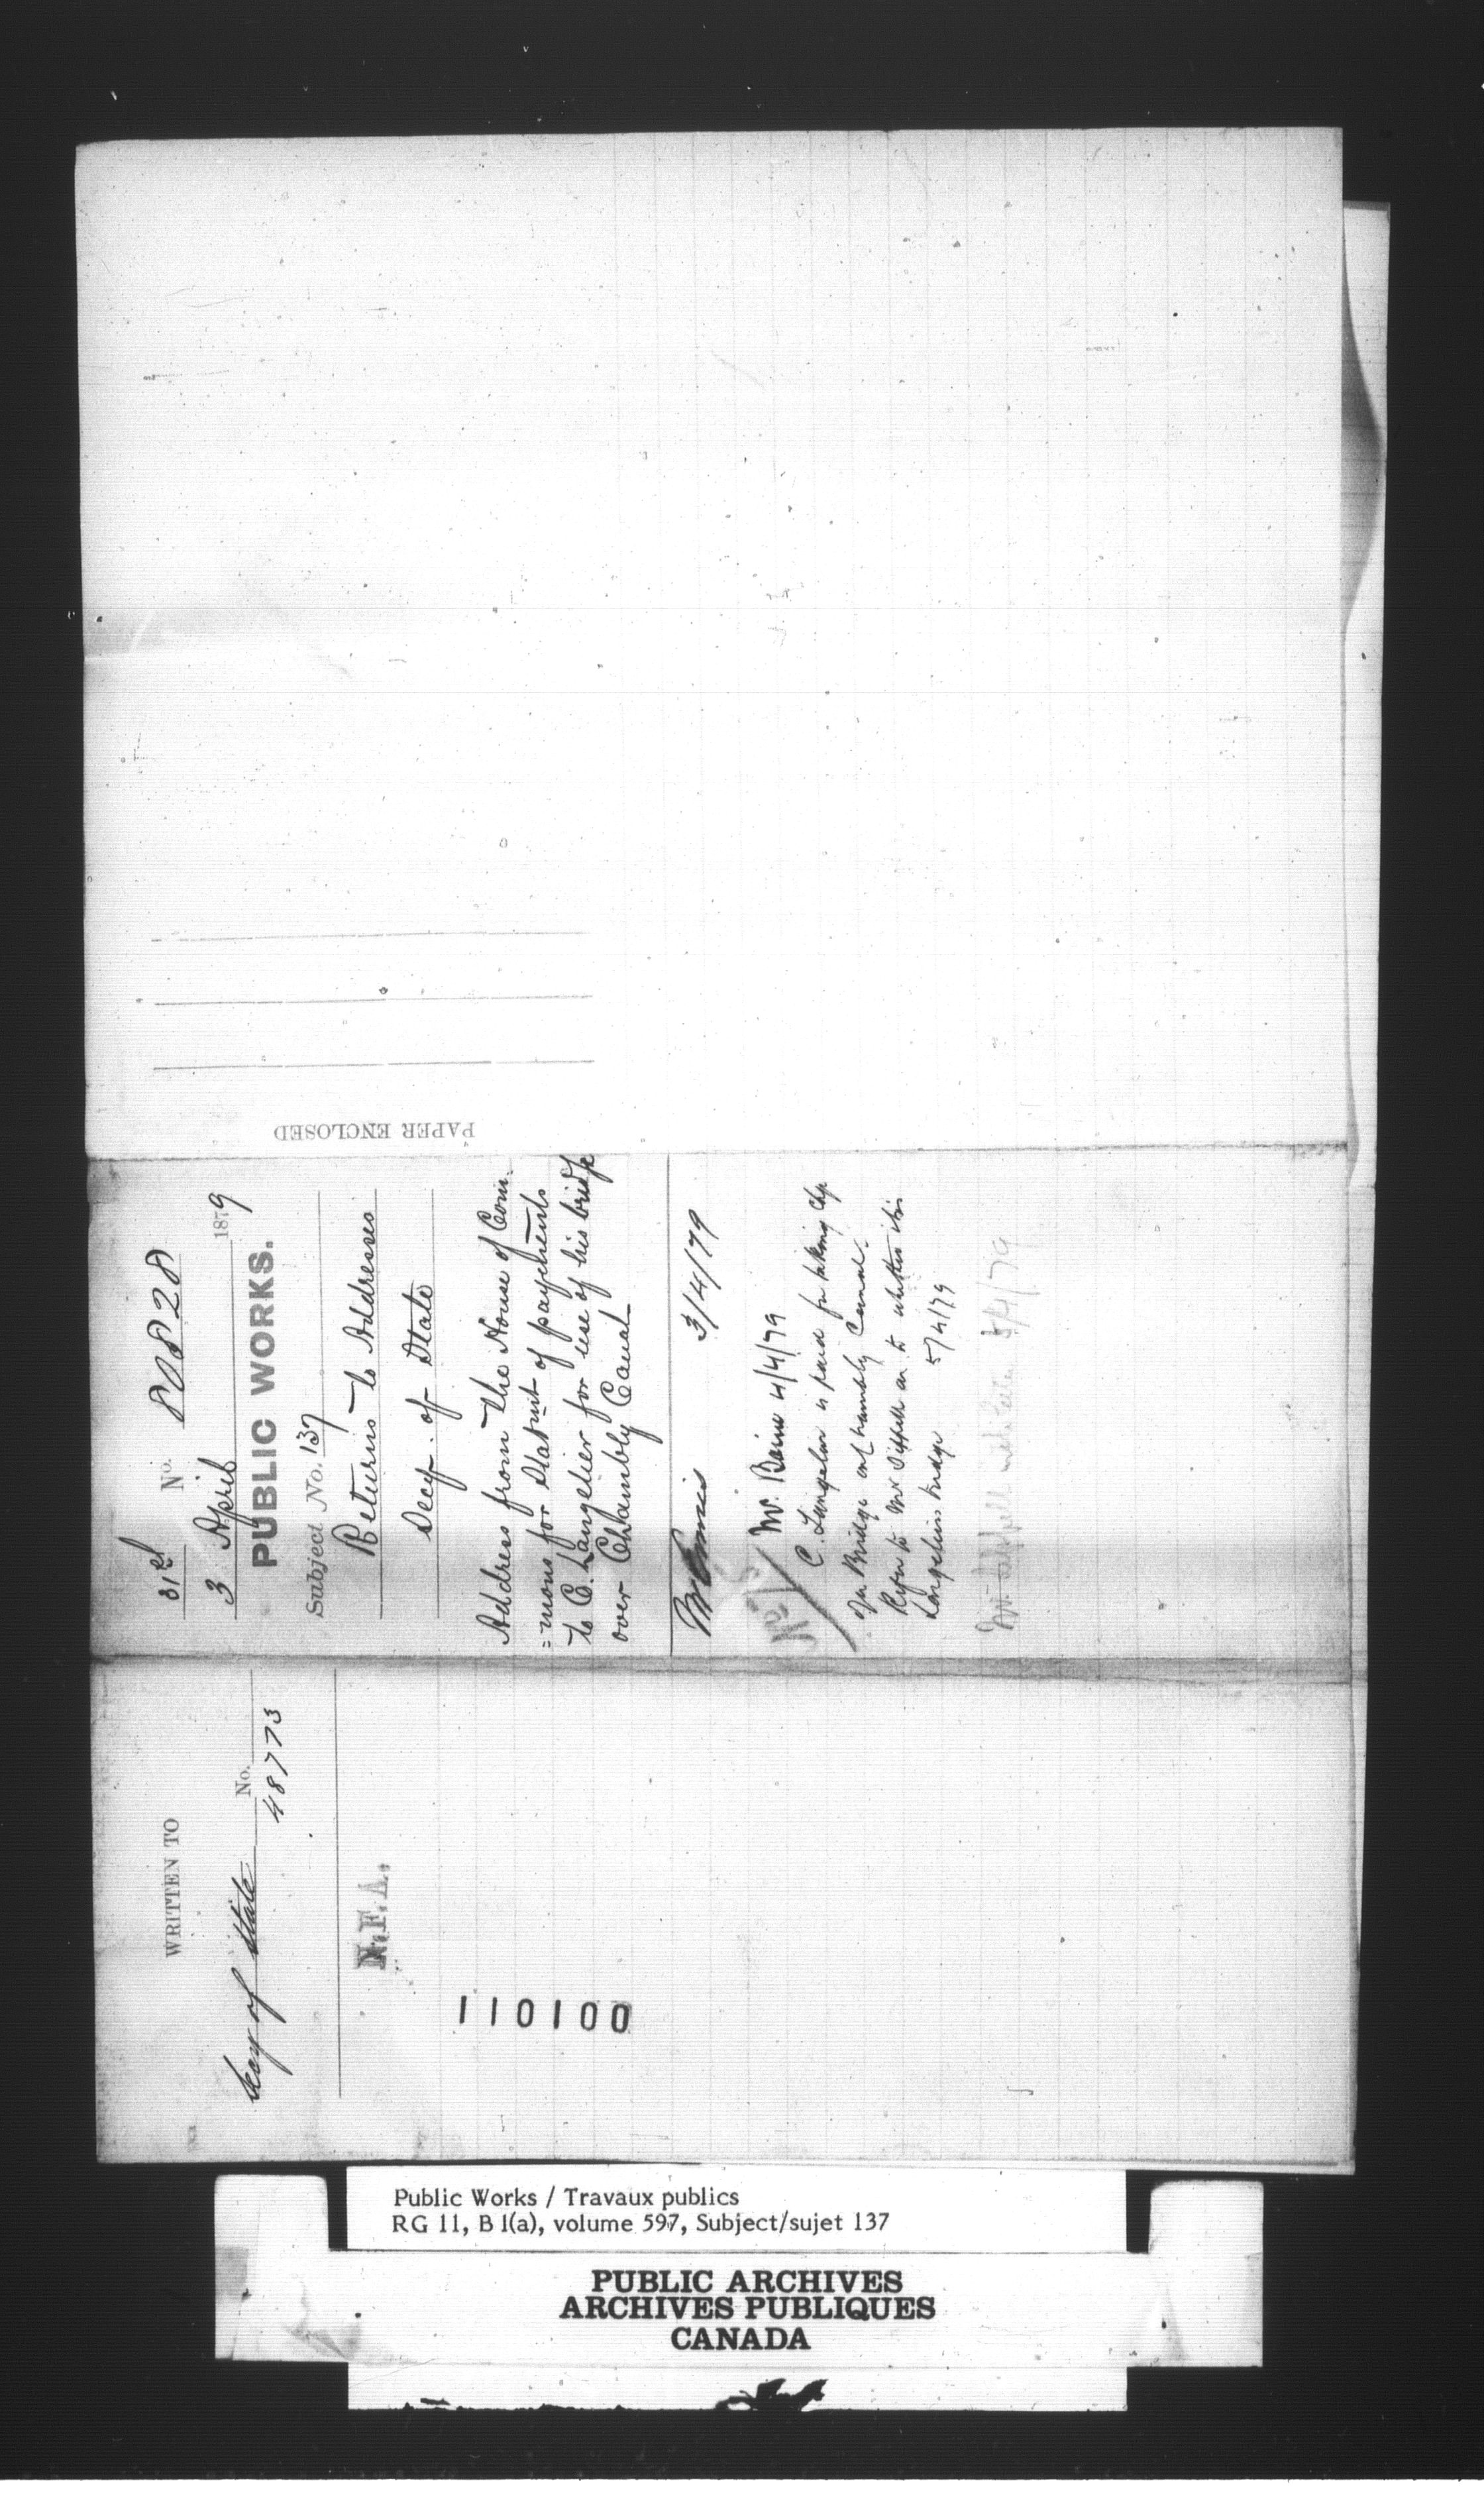 31st No. 80828
3 April 1879
PUBLIC WORKS.
Subject No. 137
Returns to Addresses
Secy. of State
Address from the House of Com.
=mons for Statmt of payments
to C. Langelier for use of his bridge
over Chambly Canal
3/4/79
Mr. Baine 4/4/79
C. Langelier is paid for taking chge
of a Bridge on Chambly Canal.
Refer to Mr Sippell as to whether it is
Langeliers bridge 5/4/79
Mr Sippell 5/4/79
PAPER ENCLOSED
WRITTEN TO
Secy of State No.
48773
N.F.A.
110100
Public Works / Travaux publics
RG 11, B 1(a), volume 597, Subject/sujet 137
PUBLIC ARCHIVES
ARCHIVES PUBLIQUES
CANADA